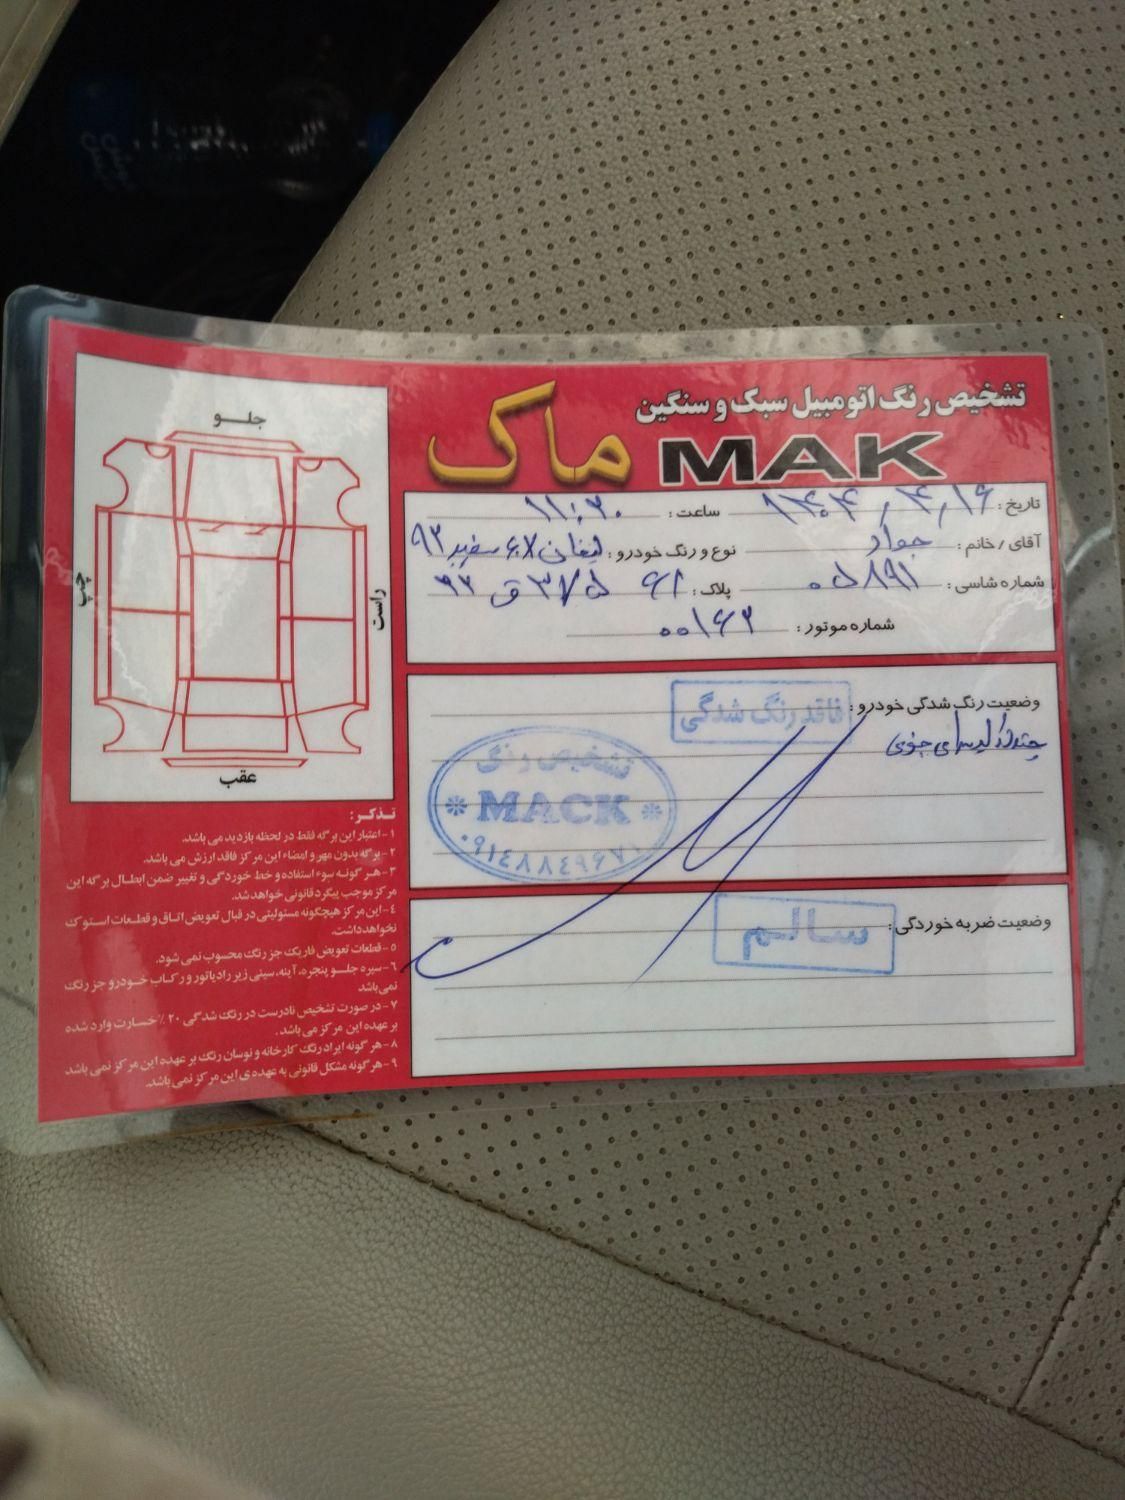 تشخیص رنگ اتومبیل سبک و سنگین
ماک MAK
تاریخ: ۱۴۰۴/۴/۱۶ ساعت: ۱۱:۳۰
آقای / خانم: جواد نوع و رنگ خودرو: لیفان سفید ۹۳
شماره شاسی: پلاک:
شماره موتور: ۰۰۱۶۳
وضعیت رنگ شدگی خودرو: فاقد رنگ شدگی
تشخیص رنگ
MACK
۰۹۱۴۸۸۴۹۶۷۱
وضعیت ضربه خوردگی: سالم
جلو
چپ
راست
عقب
تذکر:
۱- اعتبار این برگه فقط در لحظه بازدید می باشد.
۲- برگه بدون مهر و امضاء این مرکز فاقد ارزش می باشد.
۳- هرگونه سوء استفاده و خط خوردگی و تغییر ضمن ابطال برگه این
مرکز موجب پیگرد قانونی خواهد شد.
۴- این مرکز هیچگونه مسئولیتی در قبال تعویض اتاق و قطعات استوک
نخواهد داشت.
۵- قطعات تعویض فابریک جز رنگ محسوب نمی شود.
۶- سپره جلو پنجره، آینه، سینی زیر رادیاتور و رکاب خودرو جز رنگ
نمی باشد
۷- در صورت تشخیص نادرست در رنگ شدگی ۲۰٪ خسارت وارد شده
بر عهده این مرکز می باشد.
۸- هرگونه ایراد رنگ کارخانه و نوسان رنگ بر عهده این مرکز نمی باشد
۹- هرگونه مشکل قانونی به عهده ی این مرکز نمی باشد.